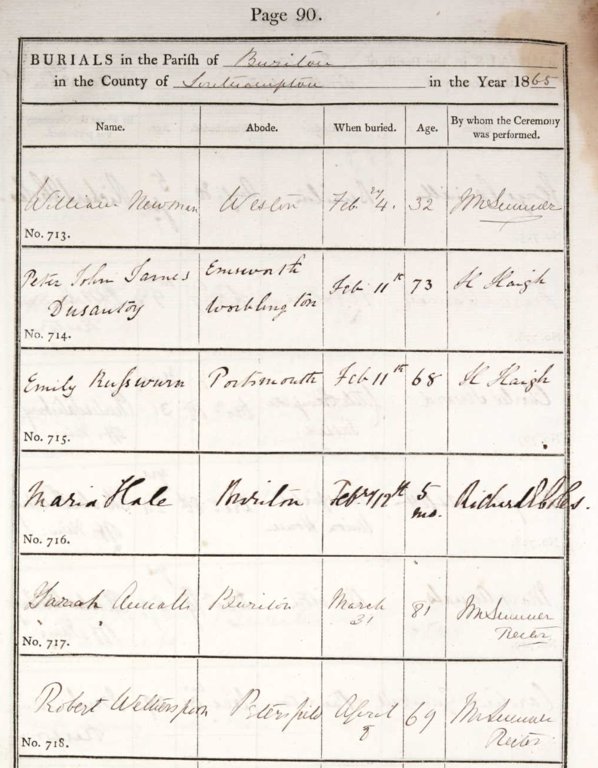 Page 90.
BURIALS in the Parish of Buriton
in the County of Southampton in the Year 1865
Name. Abode. When buried. Age. By whom the Ceremony was performed.
William Newman Weston Feb. 4. 32 JM Sumner
No. 713.
Peter John James Emsworth Feb 11th 73 H Haigh
Dusautoy Warblington
No. 714.
Emily Russwurn Portsmouth Feb 11th 68 H Haigh
No. 715.
Maria Hale Buriton Febry 12th 5 mo. Richard
No. 716.
Sarah Buriton March 31 81 JM Sumner Rector
No. 717.
Robert Wetherspoon Petersfield April 9 69 JM Sumner Rector
No. 718.